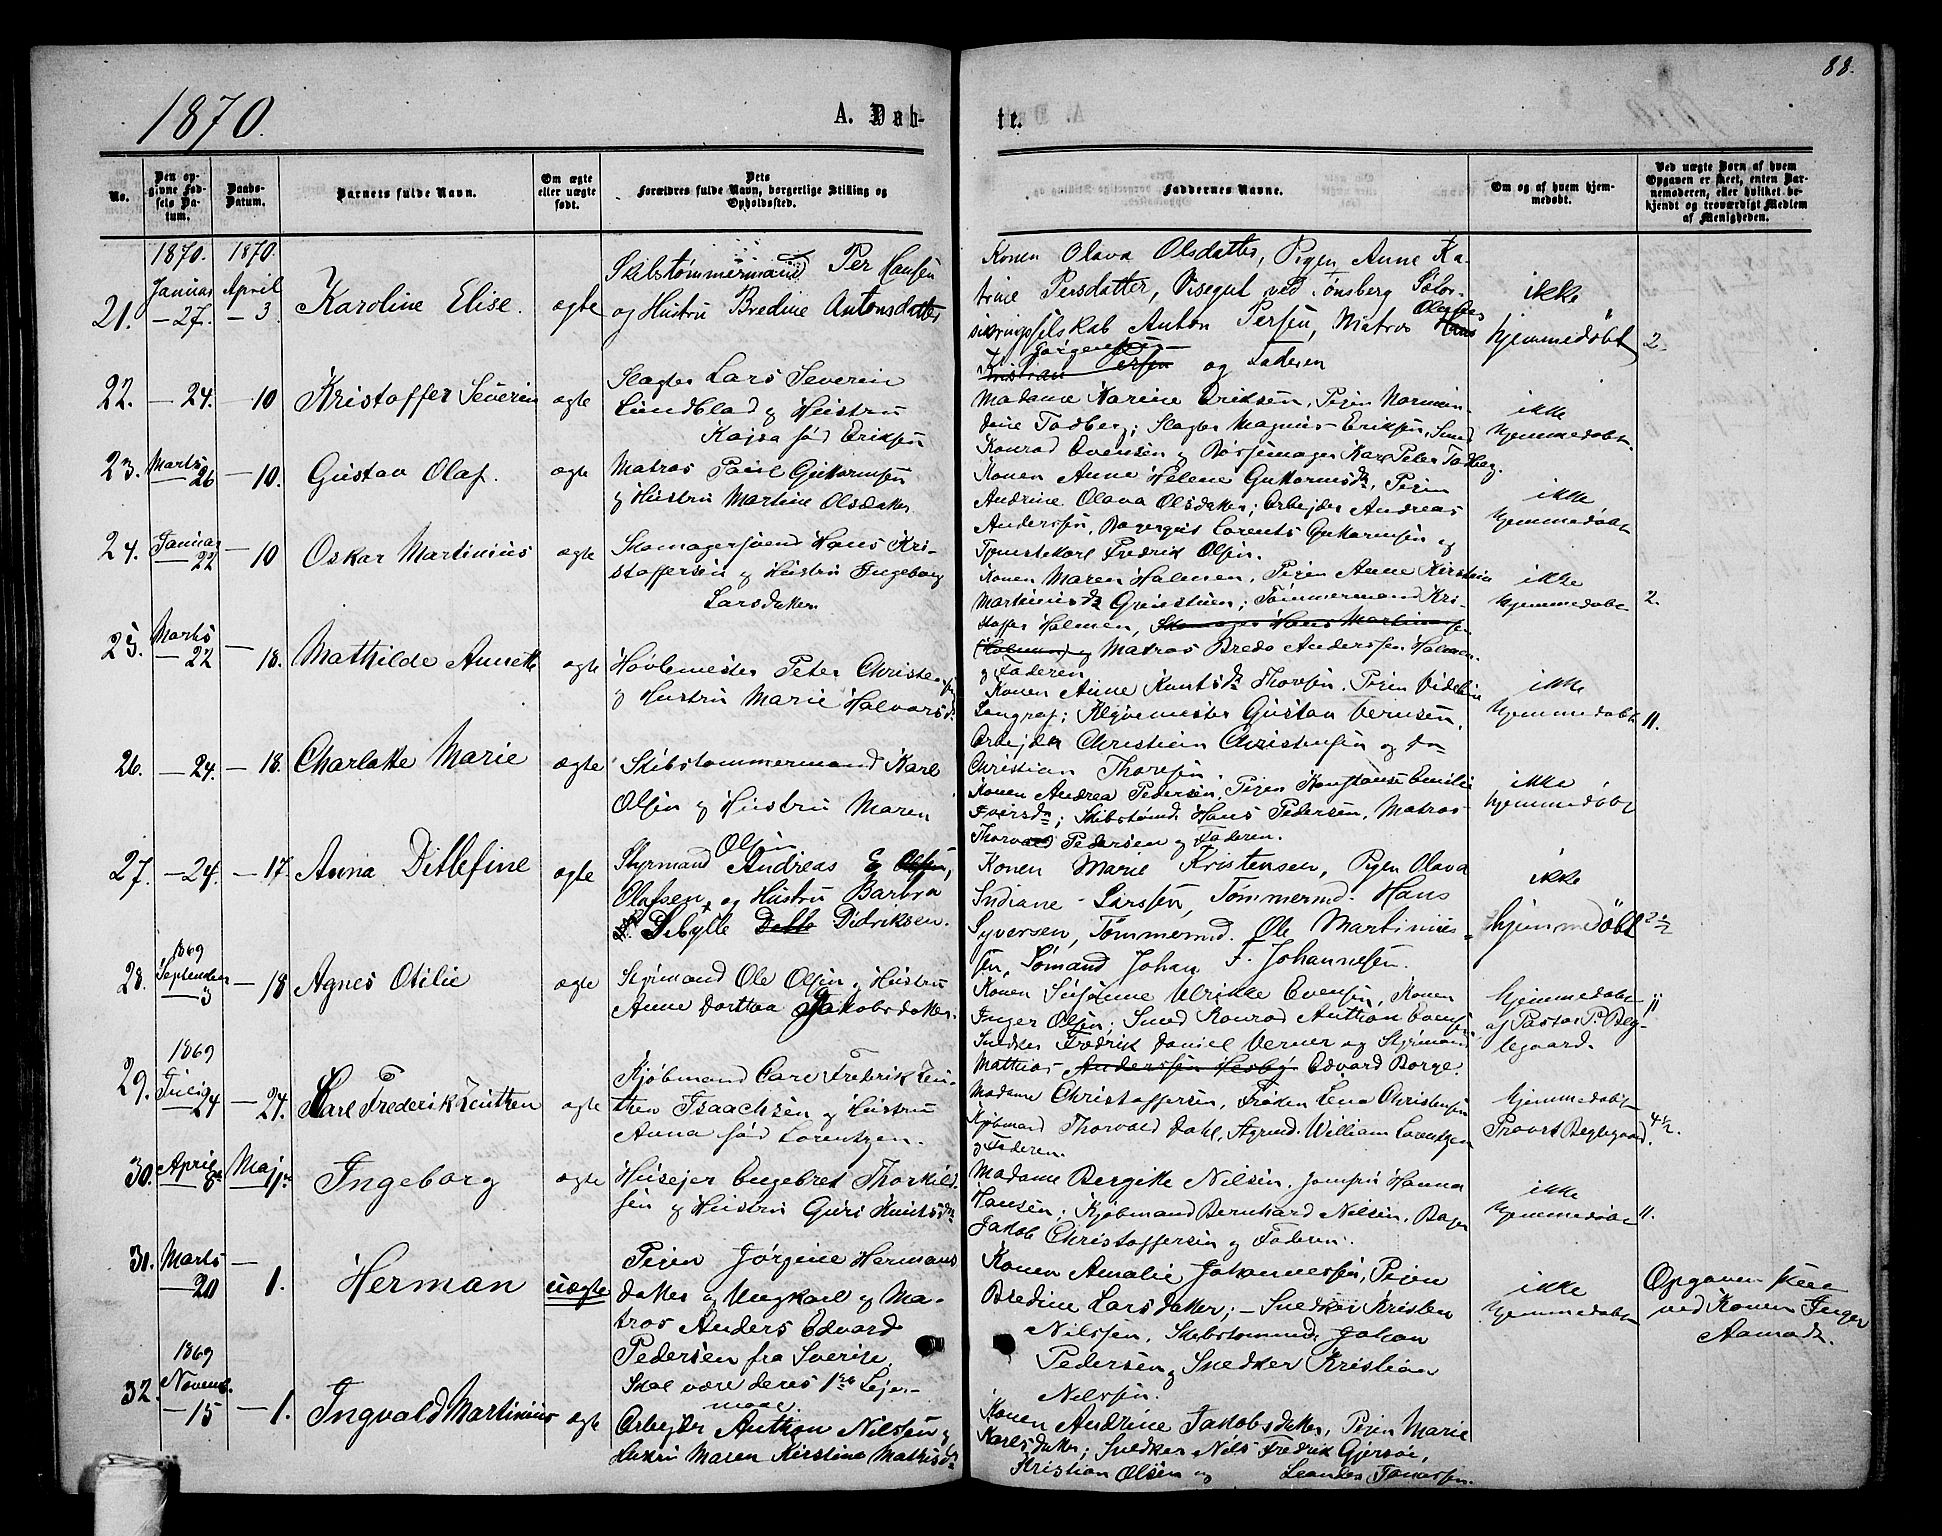 88.
1870.
A. Døb-
te.
No.
Den op-
givne Fød-
sels Da-
tum.
Daabs-
Datum.
Barnets fulde Navn.
Om ægte
eller uægte
født.
Dets
Forældres fulde Navn, borgerlige Stilling og
Opholdssted.
Faddernes Navne.
Om og af hvem hjem-
medøbt.
Ved uægte Born af hvem
Opgaven er skeet, enten Bar-
nemoderen, eller hvilket be-
kjendt og troværdigt Medlem
af Menigheden.
1870. 1870.
21. Januar 27. April 3 Karoline Elise. ægte
Skibstømmermand Per Hansen
og Hustru Bredine Antonsdatter
Konen Olava Olsdatter, Pigen Anne Ka-
trine Persdatter, Visegut ved Tønsberg Søfor-
sikringsselskab Anton Persen, Matros Hans Olaves
Jørgensen
Kristian Persen og Faderen
ikke
hjemmedøbt
2.
22. 24. 10 Kristoffer Severin ægte
Slagter Lars Severin
Lundblad og Hustru
Kajsa fød Eriksen
Madame Karine Eriksen, Pigen Normin-
dine Fadberg; Slagter Magnus Eriksen, Smed
Konrad Evensen og Børsemager Karl Peter Fadberg.
ikke
hjemmedøbt
23. Marts 26 10. Gustav Olaf. ægte
Matros Paul Guttormsen
og Hustru Martine Olsdatter
Konen Anne Helene Guttormsd., Pigen
Andrine Olava Olsdatter; Arbejder Andreas
Anderssen, Bagergut Lorents Guttormsen og
Tjenstekarl Fredrik Olsen.
ikke
hjemmedøbt
24. Januar 22 10 Oskar Martinius ægte
Skomagersvend Hans Kri-
stoffersen og Hustru Ingeborg
Larsdatter
Konen Maren Holmen, Pigen Anne Kirstine
Martinusd. Grinstuen; Tømmermand Kri-
stoffer Holmen, Skomager Hans Martinussen
(Holmen) og Matros Bredo Anderssen Holmen
og Faderen
ikke
hjemmedøbt
2.
25. Marts 22 18. Mathilde Annette ægte
Høvlemester Peter Christensen
og Hustru Marie Halvorsd.
Konen Anne Knutsd. Thoresen, Pigen Videlin
Langraf; Høvlemester Gustav Vernsen,
Arbejder Christian Christensen og do
Christian Thoresen.
ikke
hjemmedøbt
11.
26. 24. 18. Charlotte Marie ægte
Skibstømmermand Karl
Olsen og Hustru Maren
Olsen
Konen Andrea Pedersen, Pigen Konstanse Emilie
Iversd.; Skibstømd Hans Pedersen, Matros
Thorvald Pedersen og Faderen.
ikke
hjemmedøbt
27. 24. 17. Anna Ditlefine ægte
Styrmand Andreas E Olsen,
Olafsen og Hustru Barbra
Sibylle Ditto Didriksen.
Konen Marie Kristensen, Pigen Olava
Indiane Larssen, Tømmermd. Hans
Syversen, Tømmermd. Ole Martinius-
sen, Sømand Johan F. Johannesen.
ikke
hjemmedøbt
2½
28. 1869 September 3 18 Agnes Otilie ægte
Styrmand Ole Olsen og Hustru
Anne Dorthea Jakobsdatter.
Konen Susanne Ulrikke Evensen, Konen
Inger Olsen; Smed Konrad Anthon Evensen
Snedker Fredrik Daniel Verner og Styrmand
Mathias Anderssen Hesby Edvard Borge.
hjemmedøbt
af Pastor P. Beg-
legaard.
11
29. 1869 Juli 24 24. Karl Frederik Zeuthen ægte
Kjøbmand Carl Frederik Zeu-
then Isaachsen og Hustru
Anna fød Lorentzen.
Madame Christoffersen, Frøken Lena Christensen
Kjøbmand Thorvald Dahl, Styrmd. William Lorentzen
og Faderen.
hjemmedøbt
Provst Beglegaard.
4½.
30. April 8de Maj 1ste Ingeborg ægte
Husejer Engebret Thorkild-
sen og Hustru Guri Knutsd.
Madame Bergitte Nilsen, Jomfru Hanna
Hansen; Kjøbmand Bernhard Nilsen, Bager
Jakob Christoffersen og Faderen.
ikke
hjemmedøbt
11.
31. Marts 20 1. Herman uægte
Pigen Jørgine Hermans
datter og Ungkarl og Ma-
tros Anders Edvard
Pedersen fra Sverige.
Skal være deres 1ste Lejer-
maal.
Konen Amalie Johannessen, Pigen
Bredine Larsdatter; Snedker Kristen
Nilssen, Skibstømmd. Johan
Pedersen og Snedker Kristian
Nilssen.
ikke
hjemmedøbt
Opgaven skeet
ved Konen Inger
Aamodt.
32. 1869 Novemb. 15 1. Ingvald Martinius ægte
Arbejder Anthon Nilssen og
Hustru Maren Kirstine Mathisd.
Konen Andrine Jakobsdatter, Pigen Marie
Karlsdatter; Snedker Nils Fredrik Gjersøe,
Kristian Olsen og Leander Tomassen.